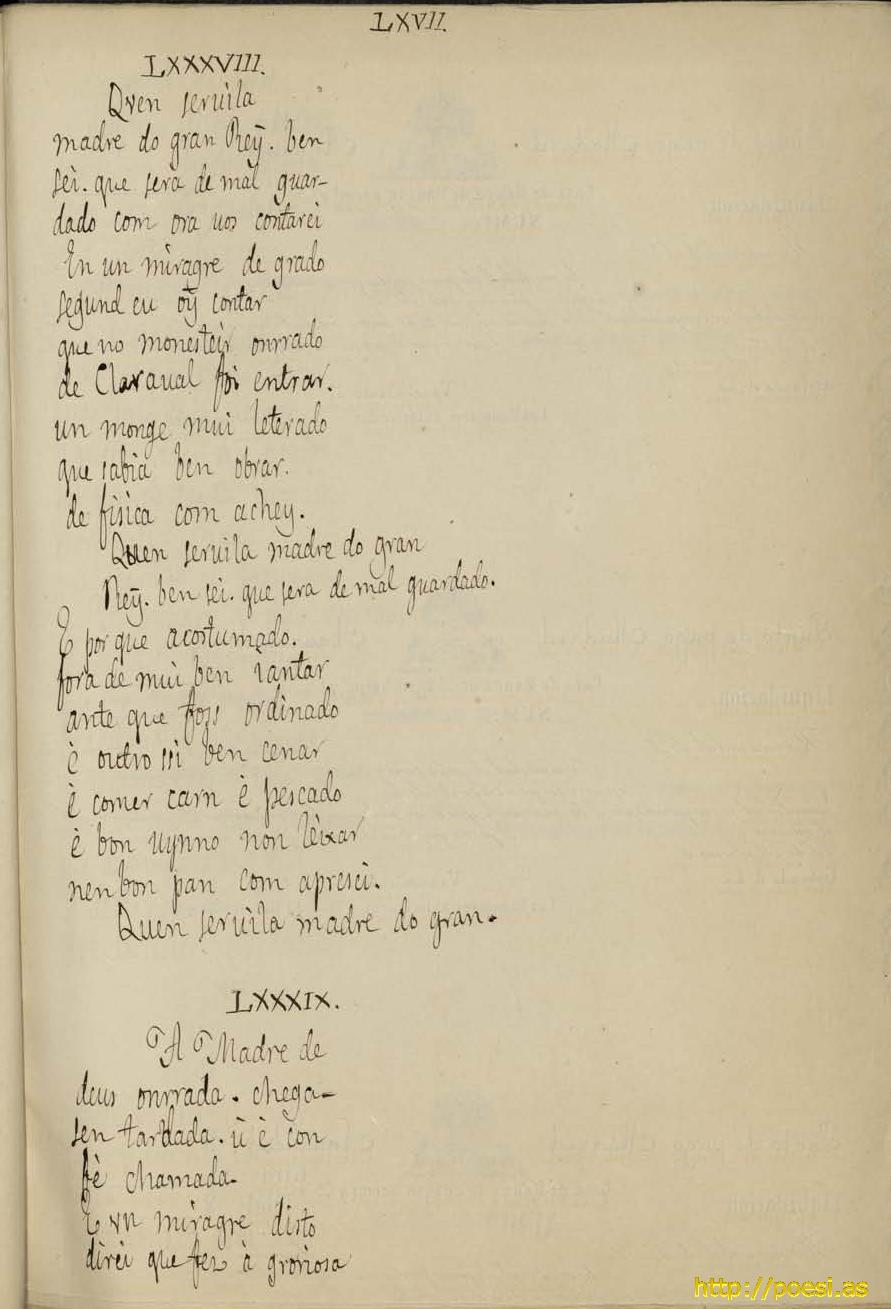 LXVII.
LXXXVIII.
Quen seruila
madre do gran Rey. ben
sei. que sera de mal guar-
dado com ora uos contarei
En un miragre de grado
segund eu oy contar
que no monesteir onrrado
de Claraual foi entrar.
un monge mui leterado
que sabia ben obrar.
de fisica com achey.
Quen seruila madre do gran
Rey. ben sei. que sera de mal guardado.
E por que acostumado.
fora de mui ben iantar
ante que foss ordinado
è outro ssi ben cenar
è comer carn è pescado
è bon uynno non leixar
nen bon pan com apresei.
Quen seruila madre do gran.
LXXXIX.
A Madre de
deus onrrada. chega-
sen tardada. ù è con
fè chamada.
E un miragre disto
direi que fez à groriosa
http://poesi.as